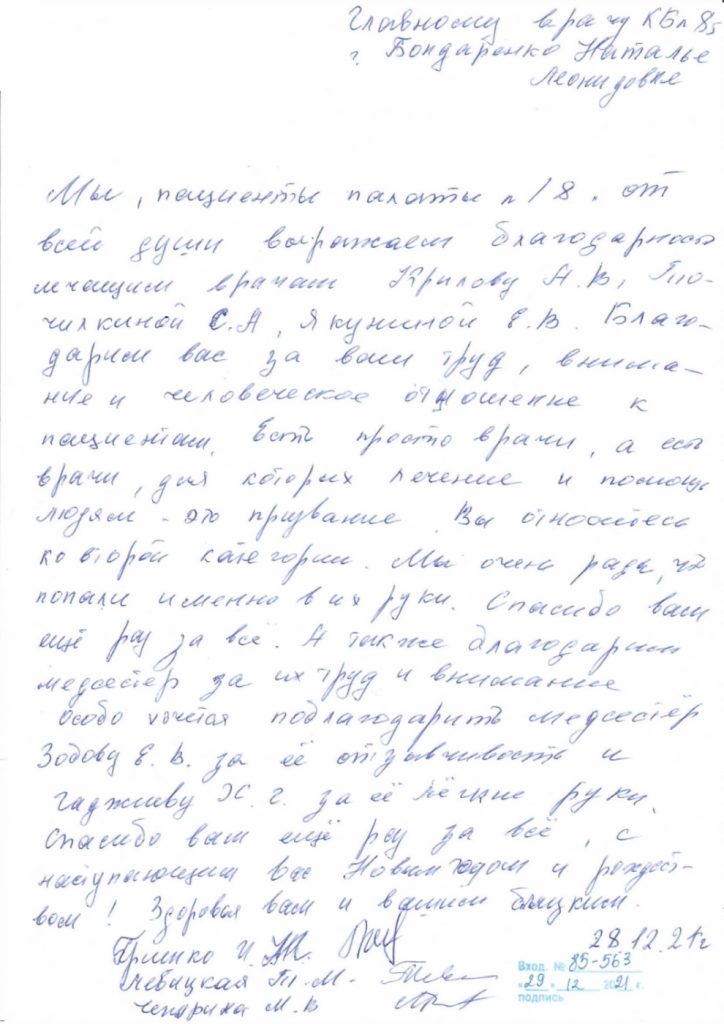 Главному врачу КБ № 85
г. Бондаренко Наталье
Леонидовне
Мы, пациенты палаты № 18, от
всей души выражаем благодарность
лечащим врачам Крилову А.В, То-
чилкиной С.А, Якуниной Е.В. Благо-
дарим вас за ваш труд, внима-
ние и человеческое отношение к
пациентам. Есть просто врачи, а есть
врачи, для которых лечение и помощь
людям - это призвание. Вы относитесь
ко второй категории. Мы очень рады, что
попали именно в их руки. Спасибо вам
ещё раз за всё. А также благодарим
медсестёр за их труд и внимание
Особо хочется поблагодарить медсестёр
Зодову Е.В. за её отзывчивость и
Гаджиеву Х.Г. за её лёгкие руки.
Спасибо вам ещё раз за всё, с
наступающим вас Новым годом и рождест-
вом! Здоровья вам и вашим близким.
28.12.21г
Т. М.
М. В
Вход. № 85-563
«29» 12 2021 г.
подпись